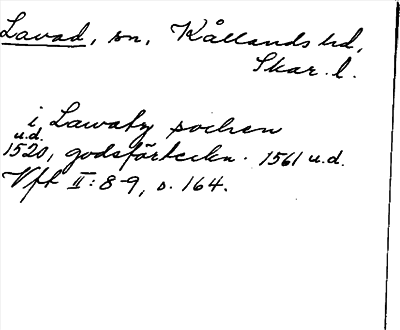 Lavad, sn, Kållands hd,
Skar. l.
i Lawaby sochen
u.d.
1520, godsförteckn. 1561 u.d.
Vft II: 8-9, s. 164.